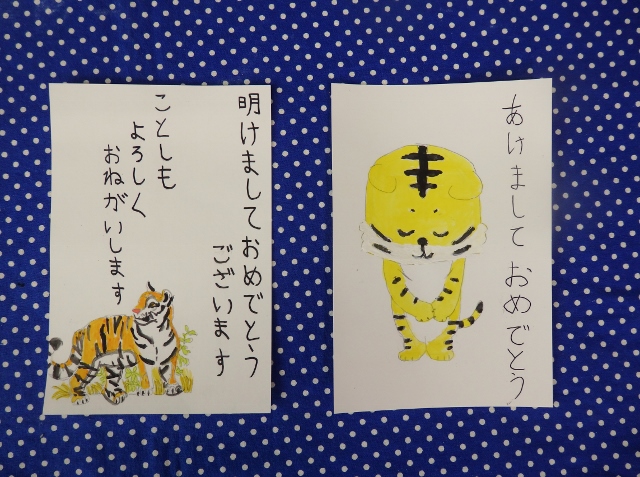 明けましておめでとう
ございます
ことしも
よろしく
おねがいします
あけまして おめでとう